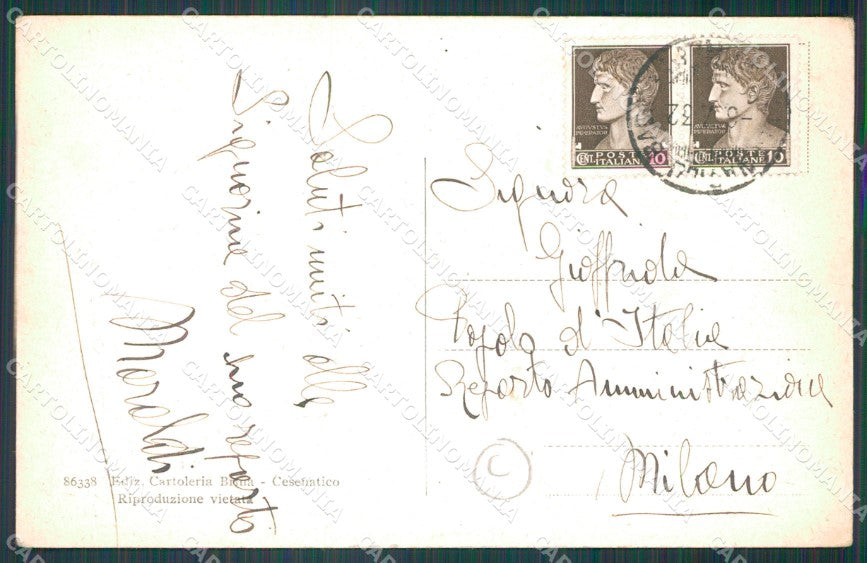 Saluti uniti alle
Signorine del suo reparto
Maraldi
86338 Ediz. Cartoleria - Cesenatico
Riproduzione vietata
AVGVSTVS
IMPERATOR
CENT. POSTE ITALIANE 10
AVGVSTVS
IMPERATOR
CENT. POSTE ITALIANE 10
Signora
Gioffrida
Popolo d'Italia
Reparto Amministrazione
Milano
C
CARTOLINOMANIA